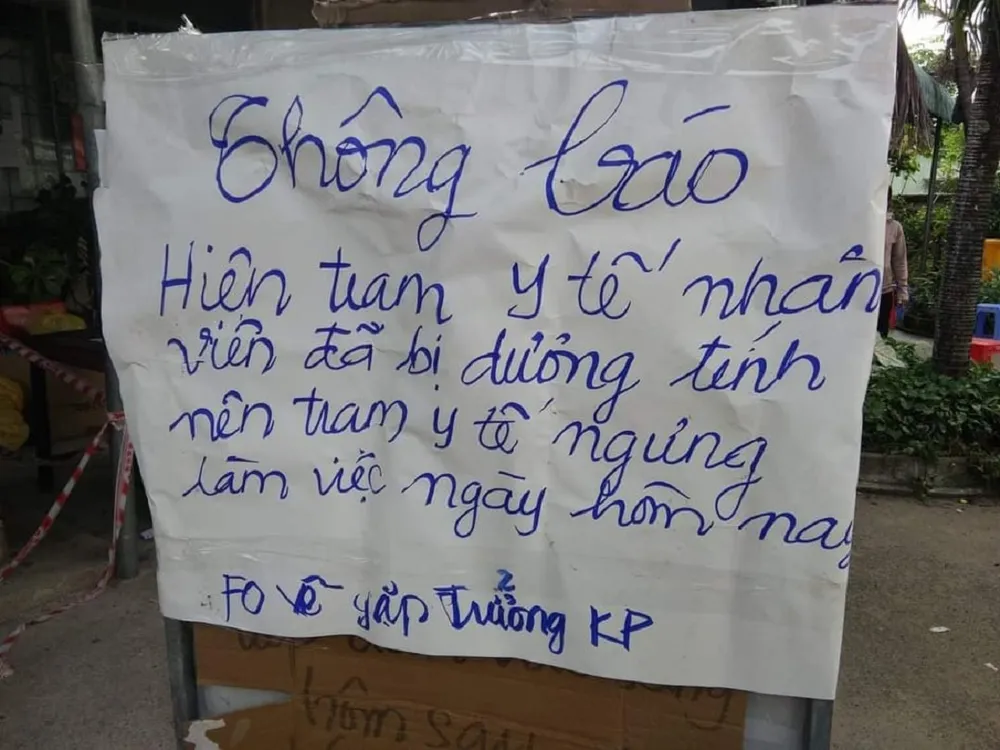 Thông báo
Hiện trạm y tế nhân
viên đã bị dương tính
nên trạm y tế ngưng
làm việc ngày hôm nay
FO về gặp trưởng KP
hôm sau